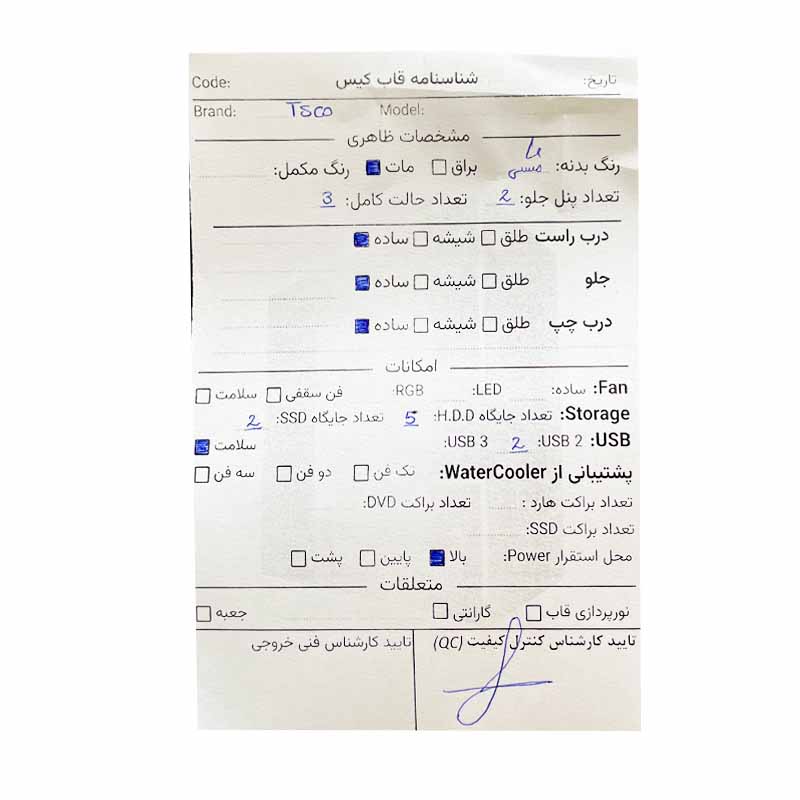 تاریخ: شناسنامه قاب کیس Code:
Brand: TSCO Model:
مشخصات ظاهری
رنگ بدنه: مسی براق مات رنگ مکمل:
تعداد پنل جلو: 2 تعداد حالت کامل: 3
درب راست طلق شیشه ساده
جلو طلق شیشه ساده
درب چپ طلق شیشه ساده
امکانات
Fan: ساده: LED: RGB: فن سقفی سلامت
Storage: تعداد جایگاه H.D.D: 5 تعداد جایگاه SSD: 2
USB: USB 2: 2 USB 3: سلامت
پشتیبانی از WaterCooler: تک فن دو فن سه فن
تعداد براکت هارد : تعداد براکت DVD:
تعداد براکت SSD:
محل استقرار Power: بالا پایین پشت
متعلقات
نورپردازی قاب گارانتی جعبه
تایید کارشناس کنترل کیفیت (QC) تایید کارشناس فنی خروجی